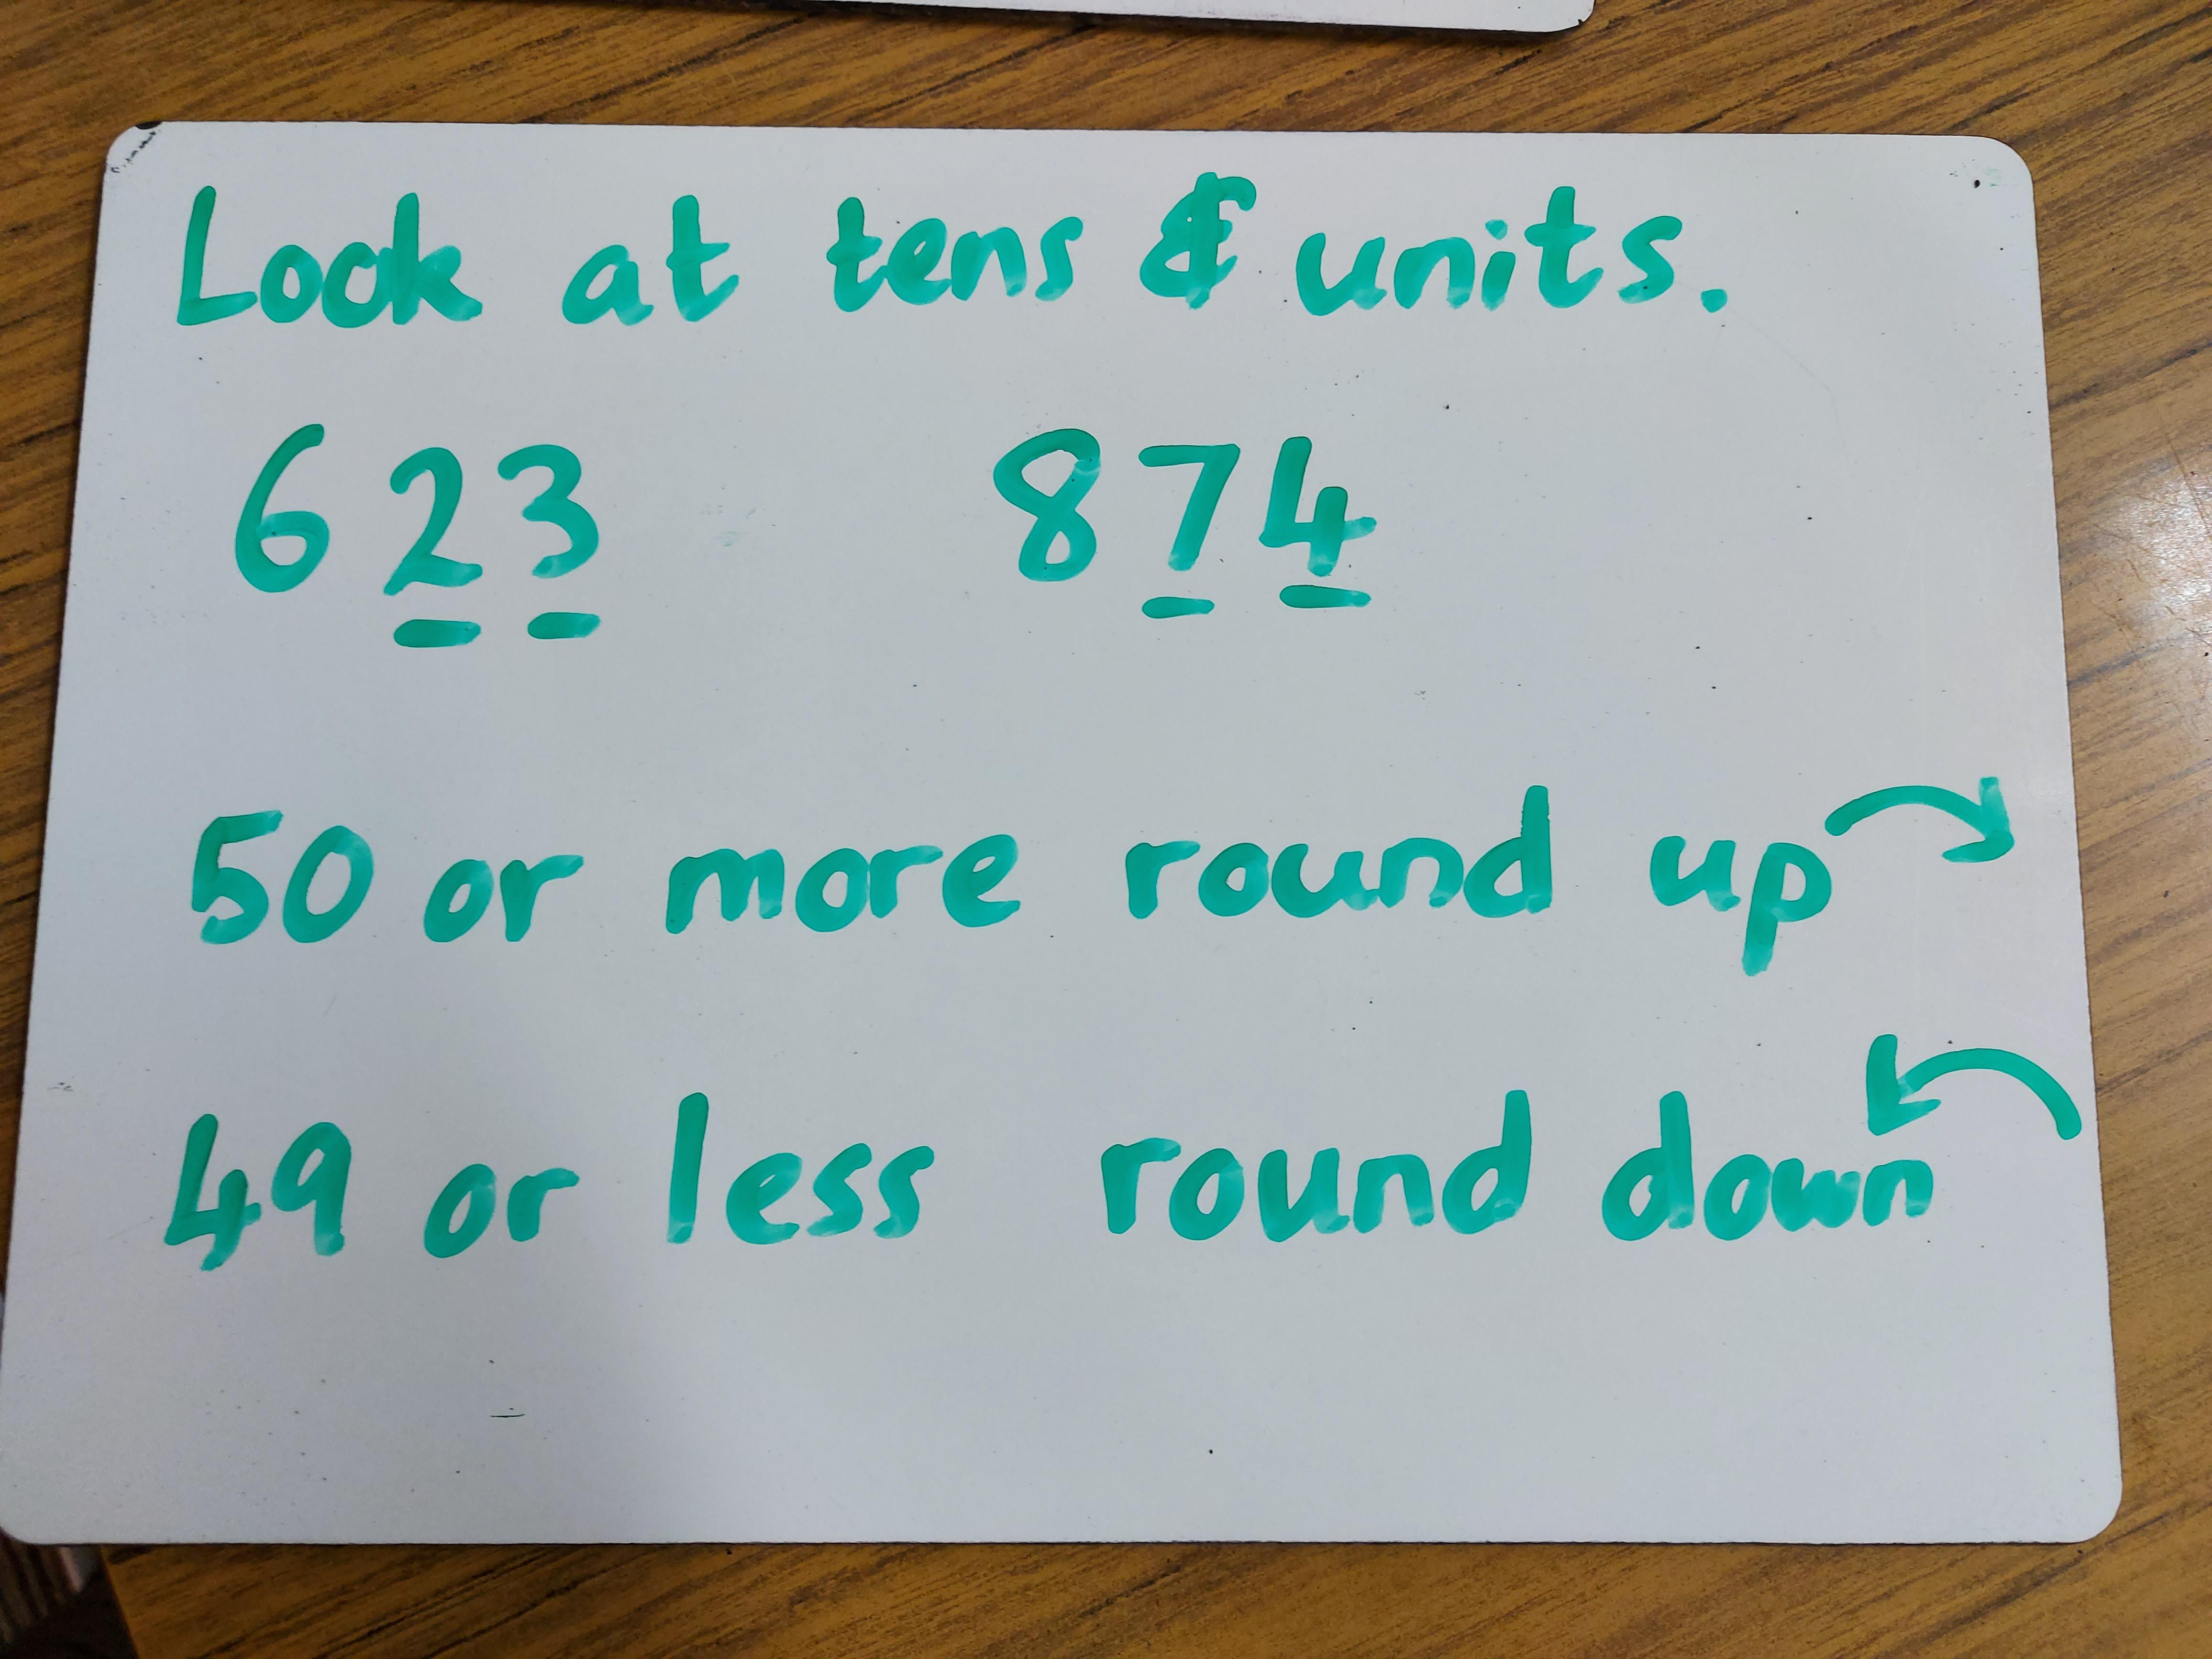 Look at tens & units.
623 874
50 or more round up
49 or less round down